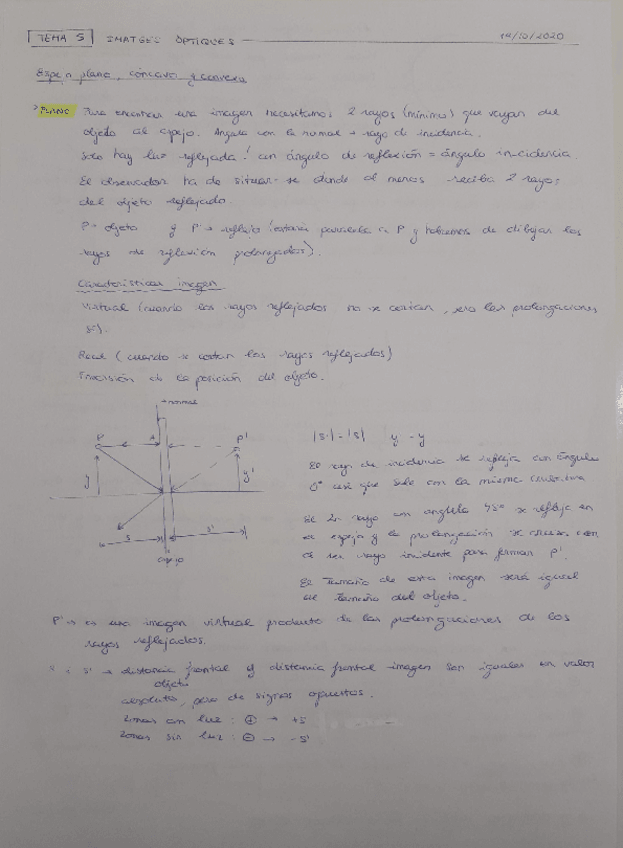 TEMA 5 IMATGES ÒPTIQUES 14/10/2020
Espejo plano, cóncavo y convexo
PLANO Para encontrar una imagen necesitamos 2 rayos (mínimo) que vayan del
objeto al espejo. Ángulo con la normal → rayo de incidencia.
Solo hay luz reflejada! con ángulo de reflexión = ángulo incidencia.
El observador ha de situar-se donde al menos reciba 2 rayos
del objeto reflejado.
P = objeto y P' → reflejo (estará paralela a P y habremos de dibujar los
rayos de reflexión prolongados).
Características imagen
Virtual (cuando los rayos reflejados no se cortan, sino las prolongaciones
sí).
Real (cuando se cortan los rayos reflejados)
de la posición del objeto.
normal
P A P'
y y'
s s'
espejo
|s'| = |s| y = y
El rayo de incidencia se refleja con ángulo
0° así que sale con la misma
El 2n rayo con angulo 45° se refleja en
el espejo y la prolongación se cruza con
el 1er rayo incidente para formar P'.
El Tamaño de esta imagen será igual
al Tamaño del objeto.
P' → es una imagen virtual producto de las prolongaciones de los
rayos reflejados.
s i s' → distancia frontal y distancia frontal imagen son iguales en valor
objeto
absoluto, pero de signos opuestos.
zonas con luz : ⊕ → +s
zonas sin luz : ⊖ → -s'